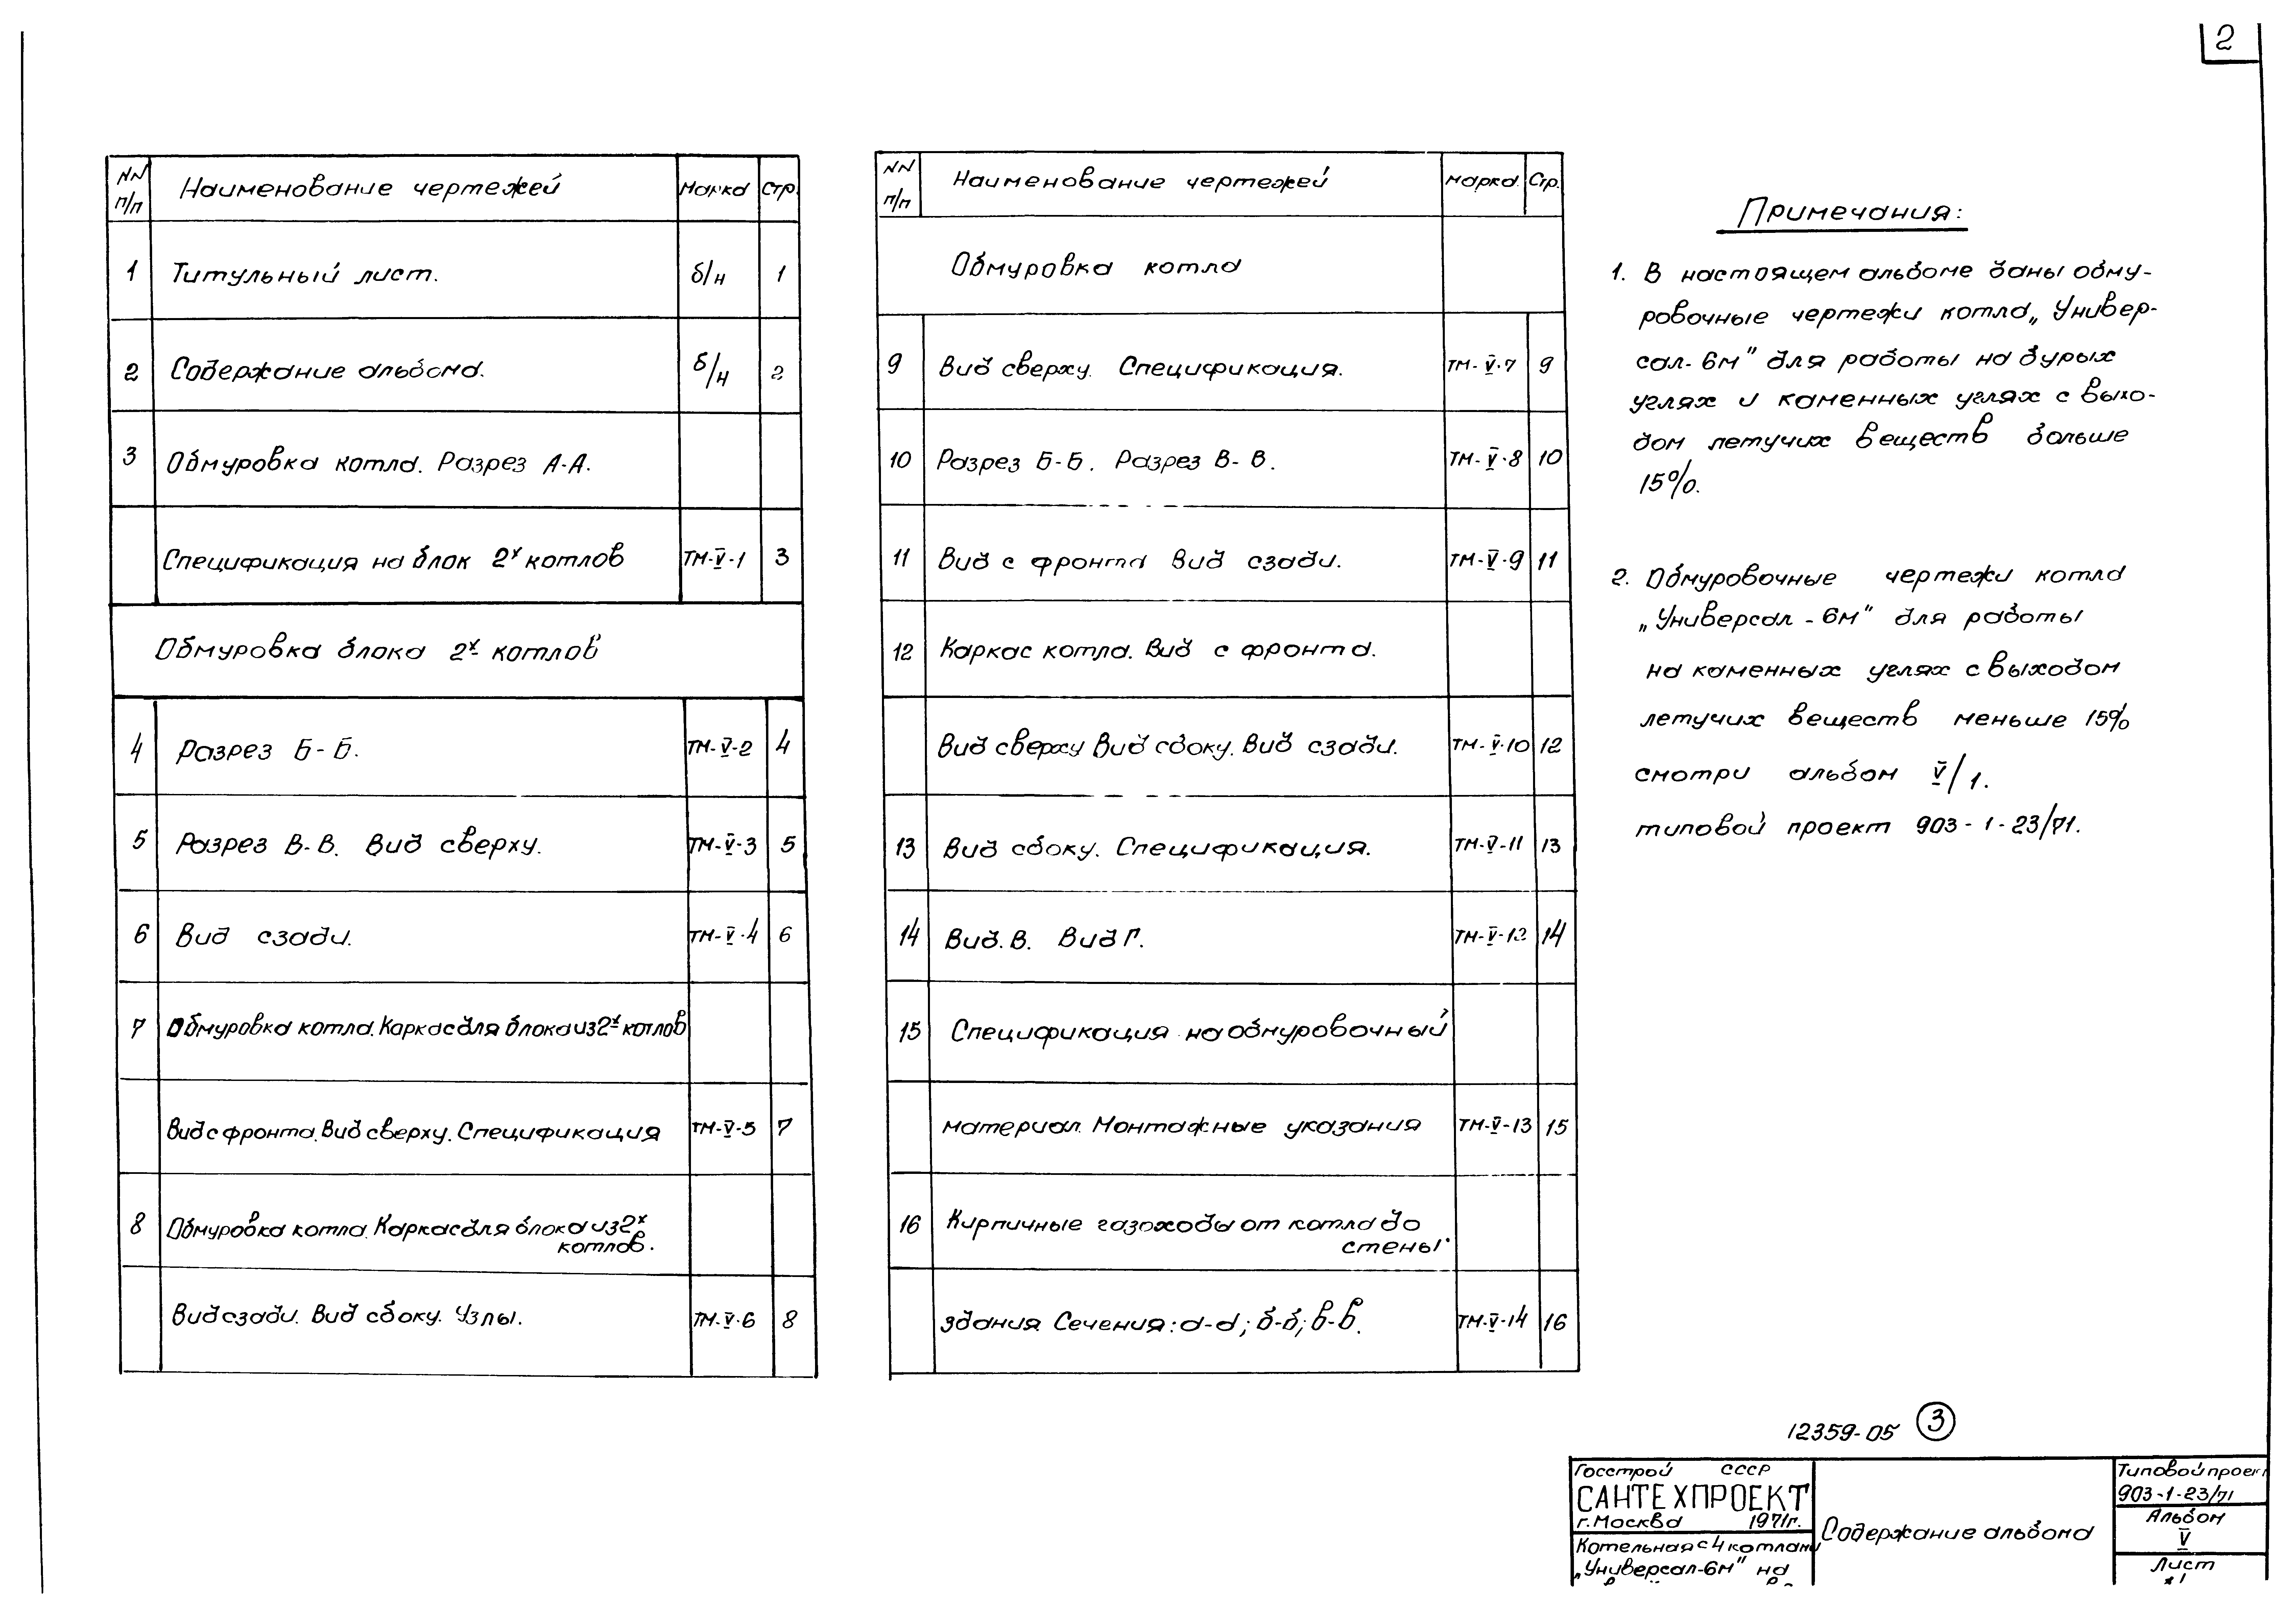 2
NN п/п Наименование чертежей Марка Стр.
1 Титульный лист. б/н 1
2 Содержание альбома. б/н 2
3 Обмуровка котла. Разрез А-А.
Спецификация на блок 2х котлов ТМ-V-1 3
Обмуровка блока 2х котлов
4 Разрез Б-Б. ТМ-V-2 4
5 Разрез В-В. Вид сверху. ТМ-V-3 5
6 Вид сзади. ТМ-V-4 6
7 Обмуровка котла. Каркас для блока из 2х котлов
Вид с фронта. Вид сверху. Спецификация ТМ-V-5 7
8 Обмуровка котла. Каркас для блока из 2х
котлов.
Вид сзади. Вид сбоку. Узлы. ТМ-V-6 8
NN п/п Наименование чертежей Марка. Стр.
Обмуровка котла
9 Вид сверху. Спецификация. ТМ-V-7 9
10 Разрез Б-Б. Разрез В-В. ТМ-V-8 10
11 Вид с фронта Вид сзади. ТМ-V-9 11
12 Каркас котла. Вид с фронта.
Вид сверху Вид сбоку. Вид сзади. ТМ-V-10 12
13 Вид сбоку. Спецификация. ТМ-V-11 13
14 Вид. В. Вид Г. ТМ-V-12 14
15 Спецификация на обмуровочный
материал. Монтажные указания ТМ-V-13 15
16 Кирпичные газоходы от котла до
стены
здания. Сечения: а-а; б-б; в-в. ТМ-V-14 16
Примечания:
1. В настоящем альбоме даны обму-
ровочные чертежи котла „Универ-
сал-6м" для работы на бурых
углях и каменных углях с выхо-
дом летучих веществ больше
15%.
2. Обмуровочные чертежи котла
„Универсал-6м" для работы
на каменных углях с выходом
летучих веществ меньше 15%
смотри альбом V/1.
типовой проект 903-1-23/71.
12359-05 3
Госстрой СССР
САНТЕХПРОЕКТ
г. Москва 1971г.
Котельная с 4 котлами
„Универсал-6м" на
Содержание альбома
Типовой проект
903-1-23/71
Альбом
V
Лист